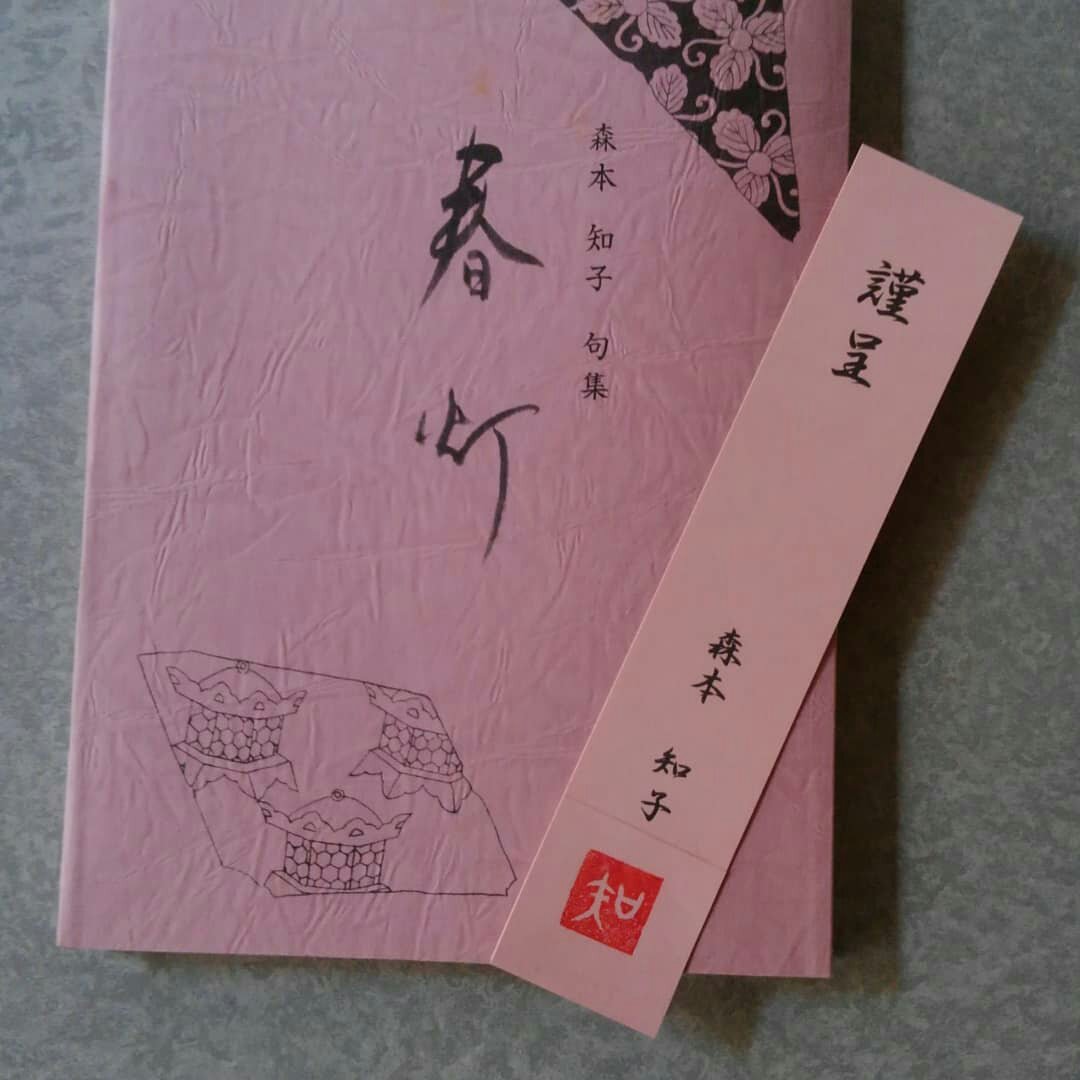 森本 知子 句集
春灯
謹呈
森本 知子
知